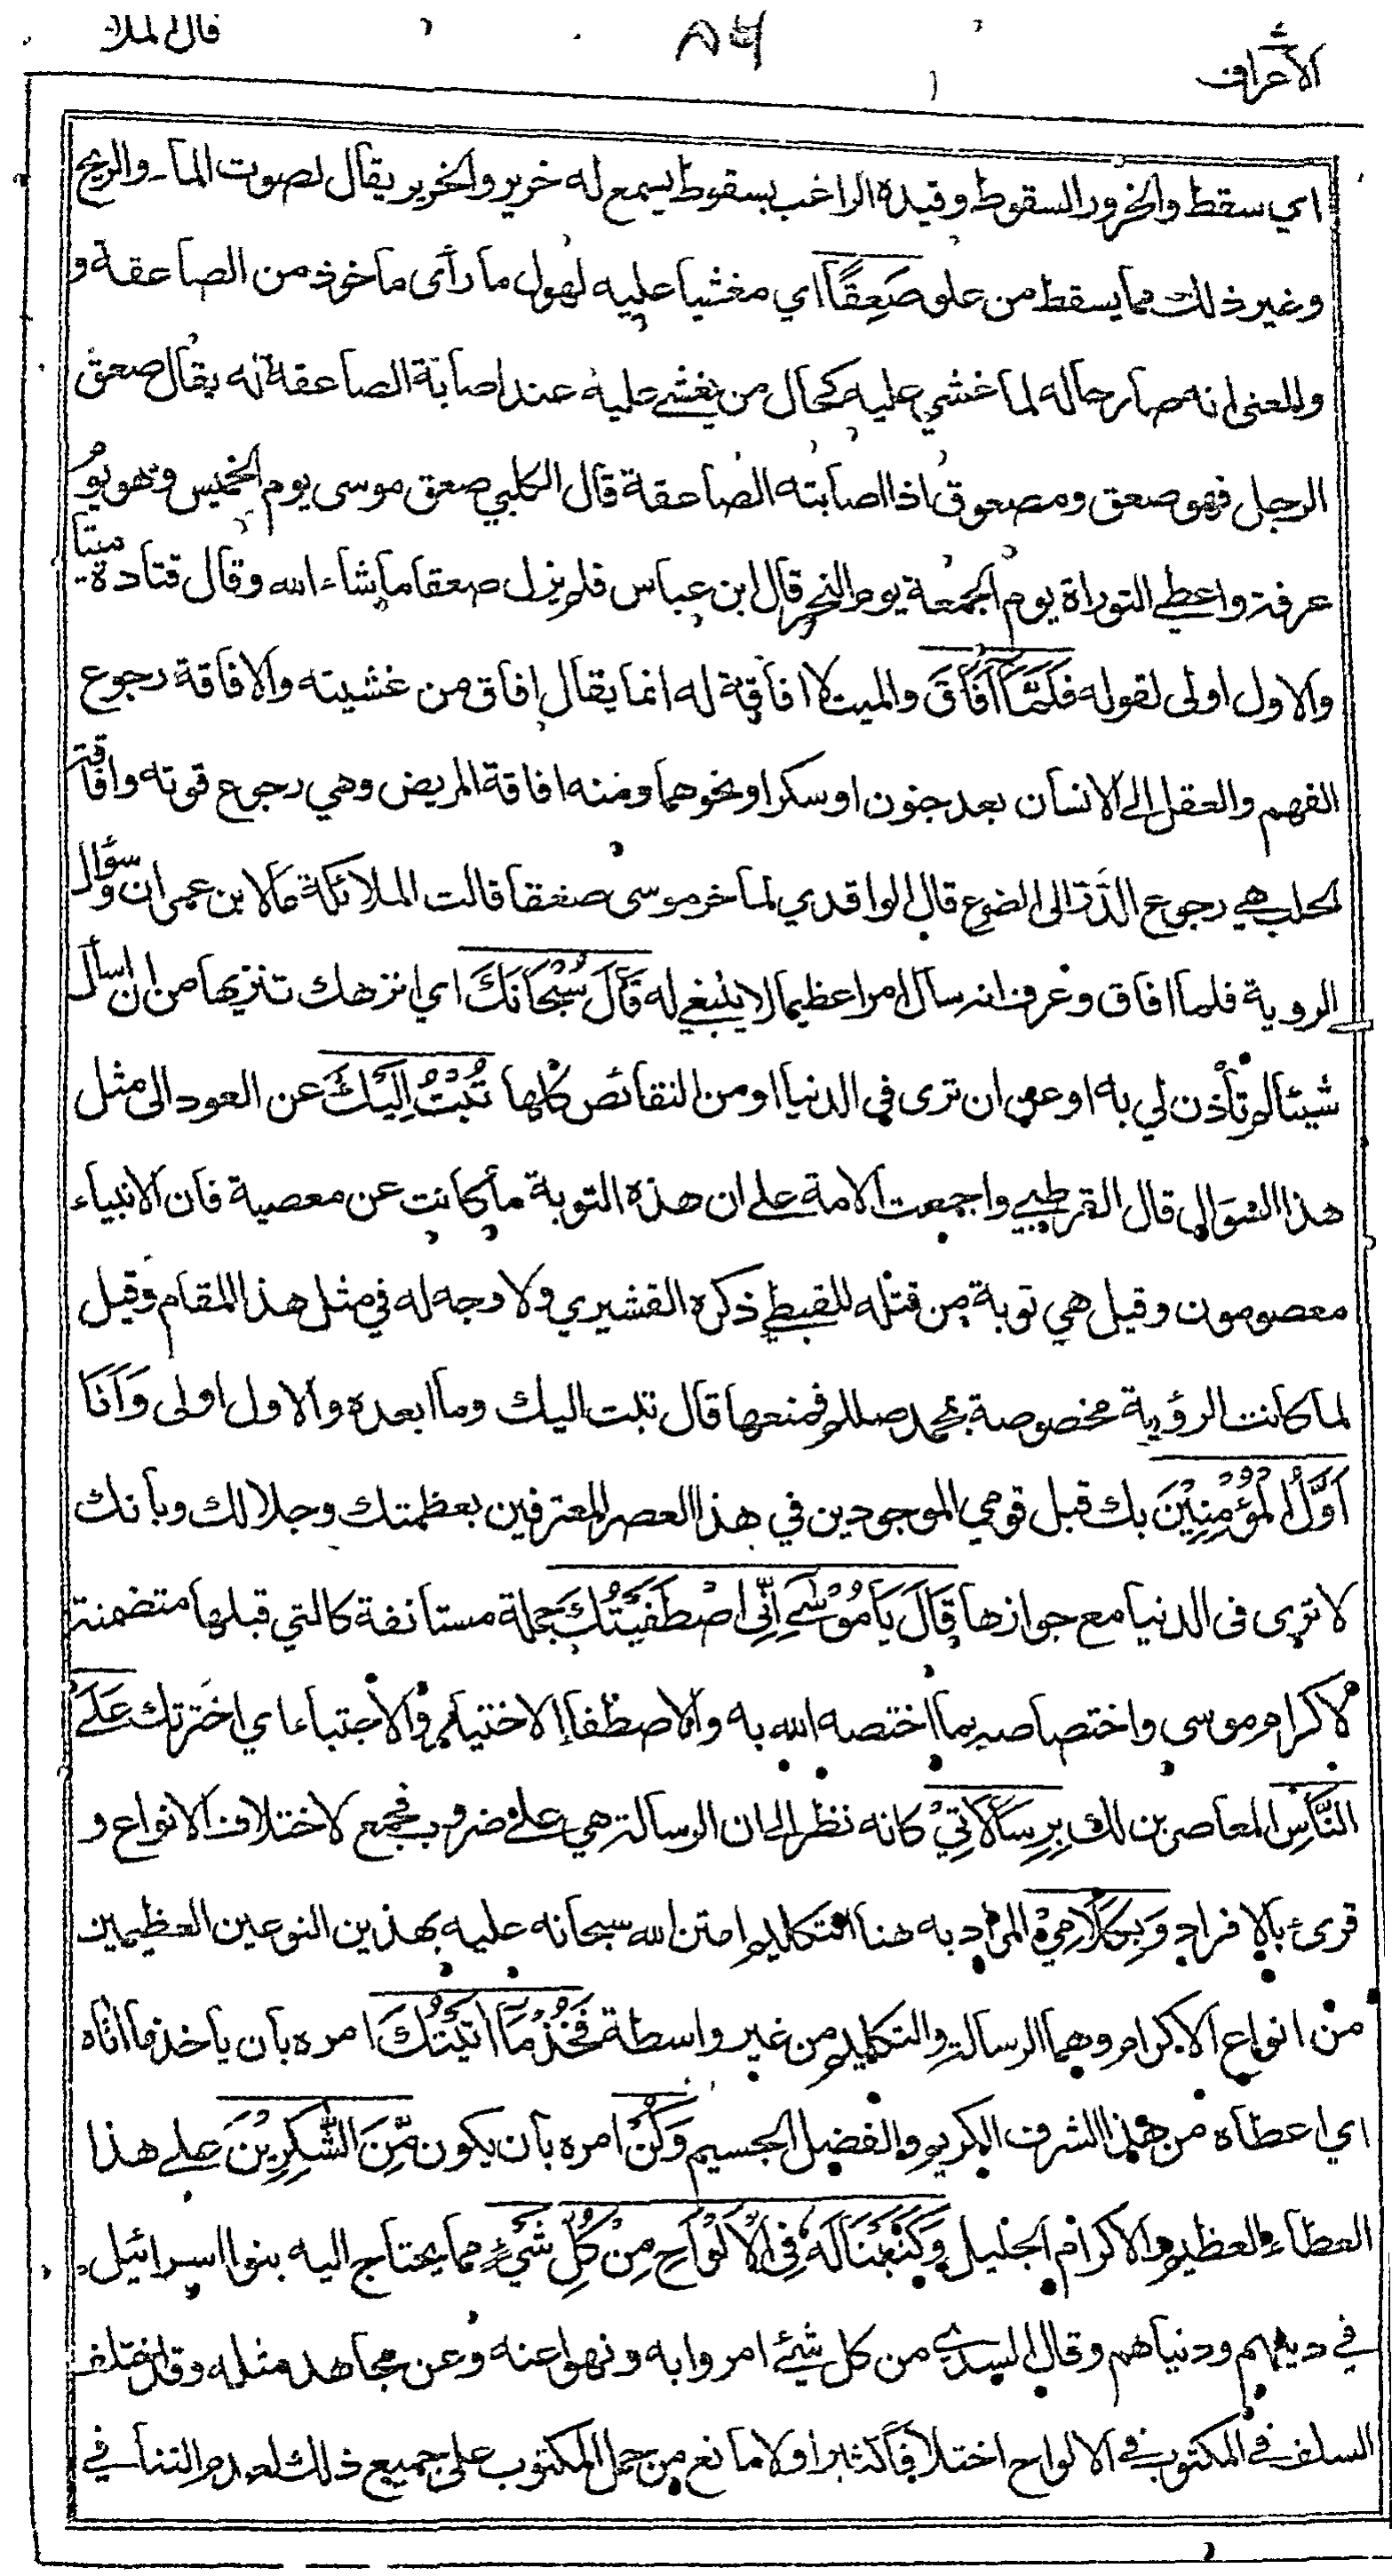 الأعراف ٨٤ قال الملأ
اي سقط والخرور السقوط وقيده الراغب بسقوط يسمع له خرير والخرير يقال لصوت الماء والريح
وغير ذلك مما يسقط من علو صَعِقًا اي مغشيا عليه لهول ما رأى ماخوذ من الصاعقة و
والمعنى انه صار حاله لما غشي عليه كحال من يغشى عليه عند اصابة الصاعقة له يقال صعق
الرجل فهو صعق ومصعوق اذا اصابته الصاعقة قال الكلبي صعق موسى يوم الخميس وهو يوم
عرفة واعطي التوراة يوم الجمعة يوم النحر قال ابن عباس فلم يزل صعقا ما شاء الله وقال قتادة ميتا
والاول اولى لقوله فَلَمَّا اَفَاقَ والميت لا افاقة له انما يقال افاق من غشيته والافاقة رجوع
الفهم والعقل الى الانسان بعد جنون او سكر او نحوهما ومنه افاقة المريض وهي رجوع قوته وافاقة
الحلب هي رجوع الدَّر الى الضرع قال الواقدي لما خر موسى صعقا قالت الملائكة ما لابن عمران وسؤال
الروية فلما افاق وعرف انه سال امرا عظيما لا ينبغي له قَالَ سُبْحَانَكَ اي انزهك تنزيها من ان اسأل
شيئا لم تأذن لي به او عن ان ترى في الدنيا او من النقائص كلها تُبْتُ اِلَيْكَ عن العود الى مثل
هذا السؤال قال القرطبي واجمعت الامة على ان هذه التوبة ما كانت عن معصية فان الانبياء
معصومون وقيل هي توبة من قتله للقبطي ذكره القشيري ولا وجه له في مثل هذا المقام وقيل
لما كانت الرؤية مخصوصة بمحمد صللم فمنعها قال تبت اليك وما ابعده والاول اولى وَاَنَا
اَوَّلُ الْمُؤْمِنِيْنَ بك قبل قومي الموجودين في هذا العصر المعترفين بعظمتك وجلالك وبأنك
لا ترى في الدنيا مع جوازها قَالَ يَا مُوْسٰى اِنِّي اصْطَفَيْتُكَ جملة مستانفة كالتي قبلها متضمنة
لاكرام موسى واختصاصه بما اختصه الله به والاصطفاء الاختيار والاجتباء اي اخترتك عَلَى
النَّاسِ المعاصرين لك بِرِسَالَاتِيْ كانه نظر الى ان الرسالة هي على ضروب فجمع لاختلاف الانواع و
قرئ بالافراد وَبِكَلَامِيْ المراد به هنا التكليم امتن الله سبحانه عليه بهذين النوعين العظيمين
من انواع الاكرام وهما الرسالة والتكليم من غير واسطة فَخُذْ مَا اٰتَيْتُكَ امره بان ياخذ ما اتاه
اي اعطاه من هذا الشرف الكريم والفضل الجسيم وَكُنْ امره بان يكون مِّنَ الشّٰكِرِيْنَ على هذا
العطاء العظيم والاكرام الجليل وَكَتَبْنَا لَهٗ فِي الْاَلْوَاحِ مِنْ كُلِّ شَيْءٍ مما يحتاج اليه بنو اسرائيل
في دينهم ودنياهم وقال السدي من كل شيئ امروا به ونهوا عنه وعن مجاهد مثله وقد اختلف
السلف في المكتوب في الالواح اختلافا كثيرا ولا مانع من حمل المكتوب على جميع ذلك لعدم التنافي